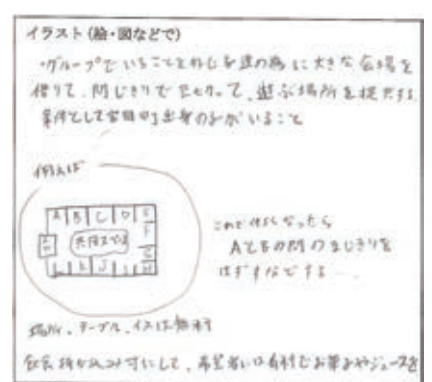 イラスト(絵・図などで)
・グループでいることを好む達の為に大きな会場を
借りて、間じきりで区切って、遊ぶ場所を提供する
条件として 出身の子がいること
例えば
A B C D E
共用スペース
F
G
L K J I H
これで仲良くなったら
AとBの間のまじきりを
はずすなどする…
場所、テーブル、イスは無料
飲食持ち込み可にして、希望者には有料でお菓子やジュースを